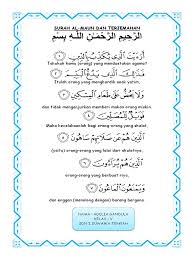 SURAH AL-MAUN DAN TERJEMAHAN
الرَّحِيمِ الرَّحْمٰنِ اللَّهِ بِسْمِ
أَرَءَيْتَ الَّذِي يُكَذِّبُ بِالدِّينِ
Tahukah kamu (orang) yang mendustakan agama?
فَذَٰلِكَ الَّذِي يَدُعُّ الْيَتِيمَ
Itulah orang yang menghardik anak yatim,
وَلَا يَحُضُّ عَلَىٰ طَعَامِ الْمِسْكِينِ
dan tidak menganjurkan memberi makan orang miskin
فَوَيْلٌ لِلْمُصَلِّينَ
Maka kecelakaanlah bagi orang-orang yang shalat,
الَّذِينَ هُمْ عَنْ صَلَاتِهِمْ سَاهُونَ
(yaitu) orang-orang yang lalai dari shalatnya,
الَّذِينَ هُمْ يُرَاءُونَ
orang-orang yang berbuat riya,
وَيَمْنَعُونَ الْمَاعُونَ
dan enggan (menolong dengan) barang berguna
KELAS : V